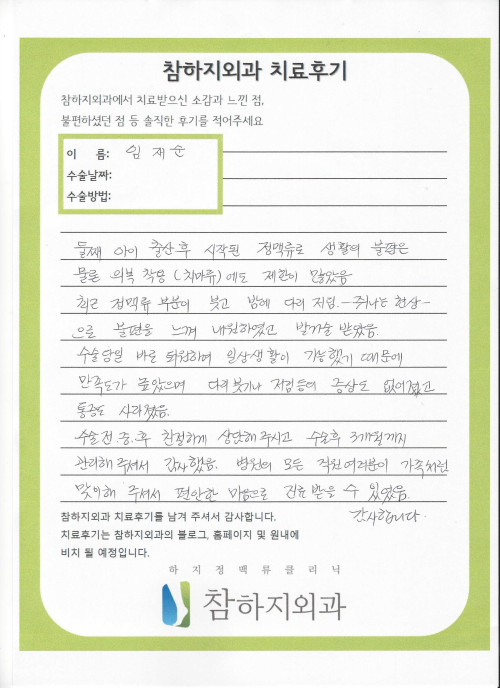 참하지외과 치료후기
참하지외과에서 치료받으신 소감과 느낀 점,
불편하셨던 점 등 솔직한 후기를 적어주세요
이 름: 임재순
수술날짜:
수술방법:
둘째 아이 출산후 시작된 정맥류로 생활의 불편은
물론 의복 착용 (치마류)에도 제한이 많았음
최근 정맥류 부분이 붓고 밤에 다리 저림. -쥐나는 현상-
으로 불편을 느껴 내원하였고 받았음.
수술당일 바로 퇴원하여 일상생활이 가능했기 때문에
만족도가 높았으며 다리붓기나 저림등의 증상도 없어졌고
통증도 사라졌음.
수술전.중.후 친절하게 상담해주시고 수술후 3개월까지
관리해주셔서 감사했음. 병원의 모든 직원여러분이 가족처럼
맞이해 주셔서 편안한 마음으로 진료받을 수 있었음.
감사합니다.
참하지외과 치료후기를 남겨 주셔서 감사합니다.
치료후기는 참하지외과의 블로그, 홈페이지 및 원내에
비치 될 예정입니다.
하지정맥류클리닉
참하지외과